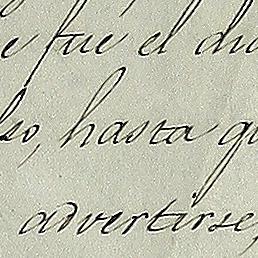 e fue el du
so, hasta qu
advertirse,